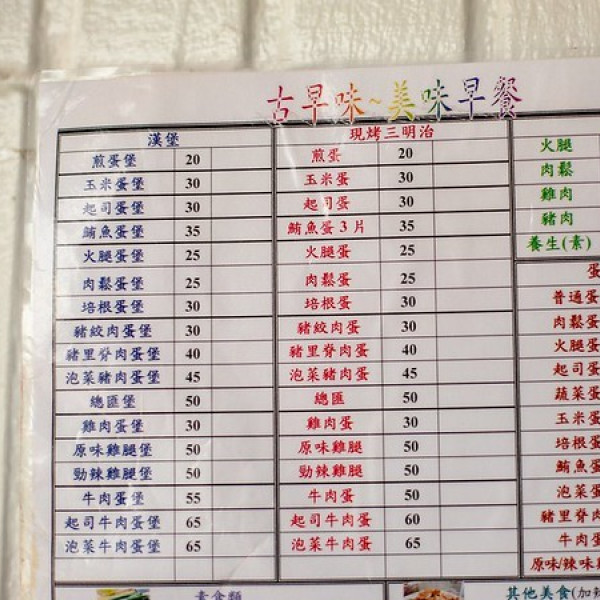 古早味~美味早餐
漢堡
煎蛋堡 20
玉米蛋堡 30
起司蛋堡 30
鮪魚蛋堡 35
火腿蛋堡 25
肉鬆蛋堡 25
培根蛋堡 30
豬絞肉蛋堡 30
豬里脊肉蛋堡 40
泡菜豬肉蛋堡 45
總匯堡 50
雞肉蛋堡 30
原味雞腿堡 50
勁辣雞腿堡 50
牛肉蛋堡 55
起司牛肉蛋堡 65
泡菜牛肉蛋堡 65
現烤三明治
煎蛋 20
玉米蛋 30
起司蛋 30
鮪魚蛋3片 35
火腿蛋 25
肉鬆蛋 25
培根蛋 30
豬絞肉蛋 30
豬里脊肉蛋 40
泡菜豬肉蛋 45
總匯 50
雞肉蛋 30
原味雞腿 50
勁辣雞腿 50
牛肉蛋 50
起司牛肉蛋 60
泡菜牛肉蛋 65
火腿
肉鬆
雞肉
豬肉
養生(素)
蛋
普通蛋
肉鬆蛋
火腿蛋
起司蛋
蔬菜蛋
玉米蛋
培根蛋
鮪魚蛋
泡菜蛋
豬里脊肉
牛肉蛋
原味/辣味
素食類
其他美食(加